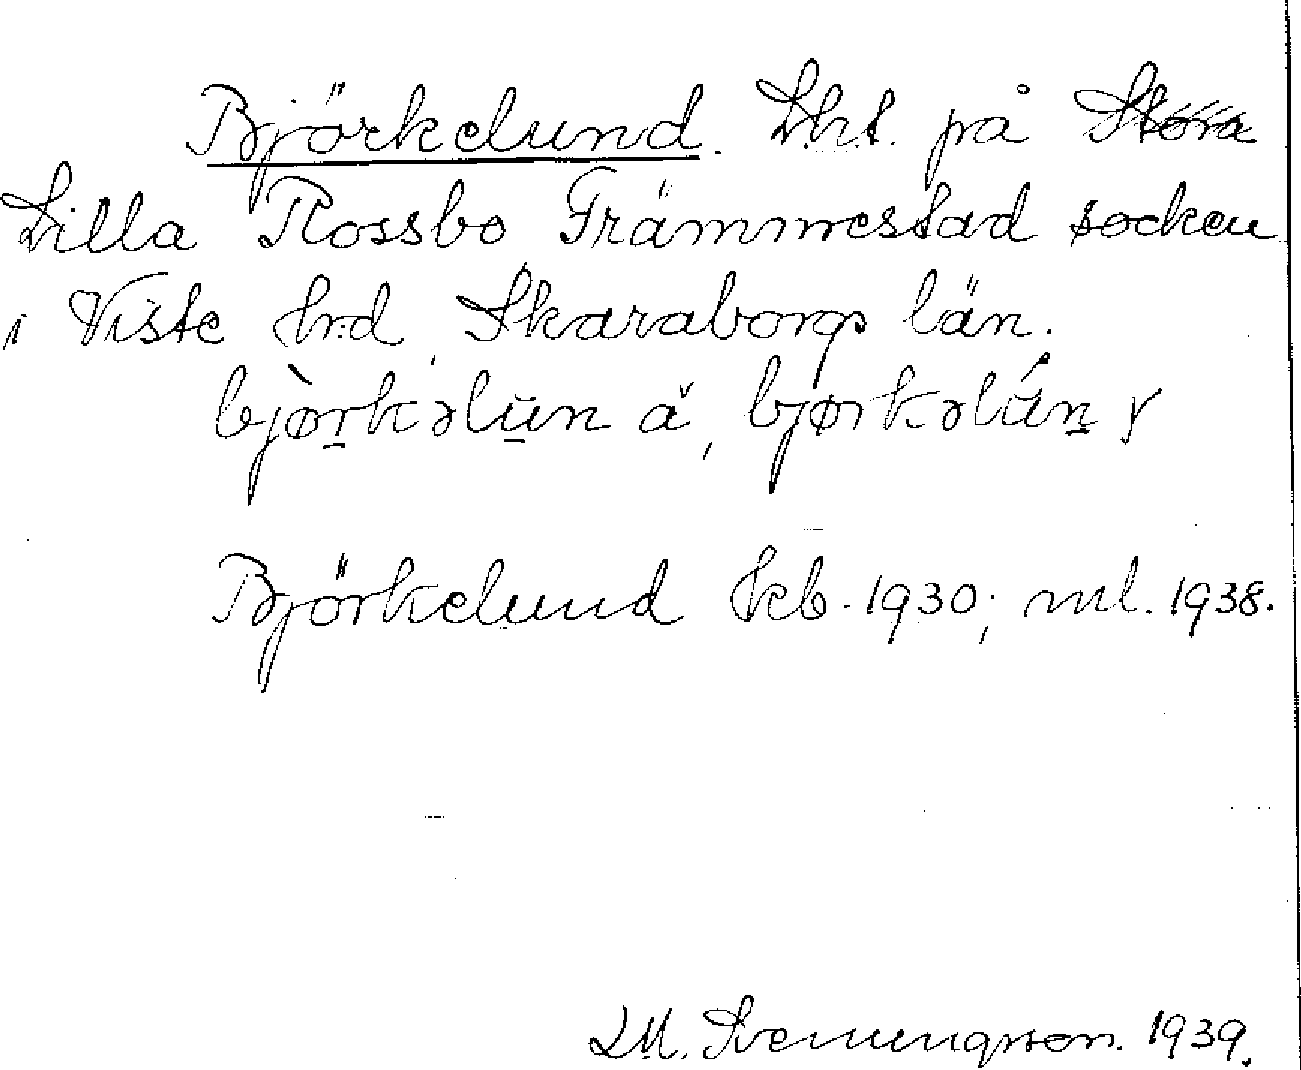 Björkelund. Lht. på
Lilla Rossbo, Främmestad socken
i Viste hrd, Skaraborgs län.
bjòrkəlun ă, bjørkəlún
Björkelund kb. 1930; ml. 1938.
L.M. Svenungsson. 1939.